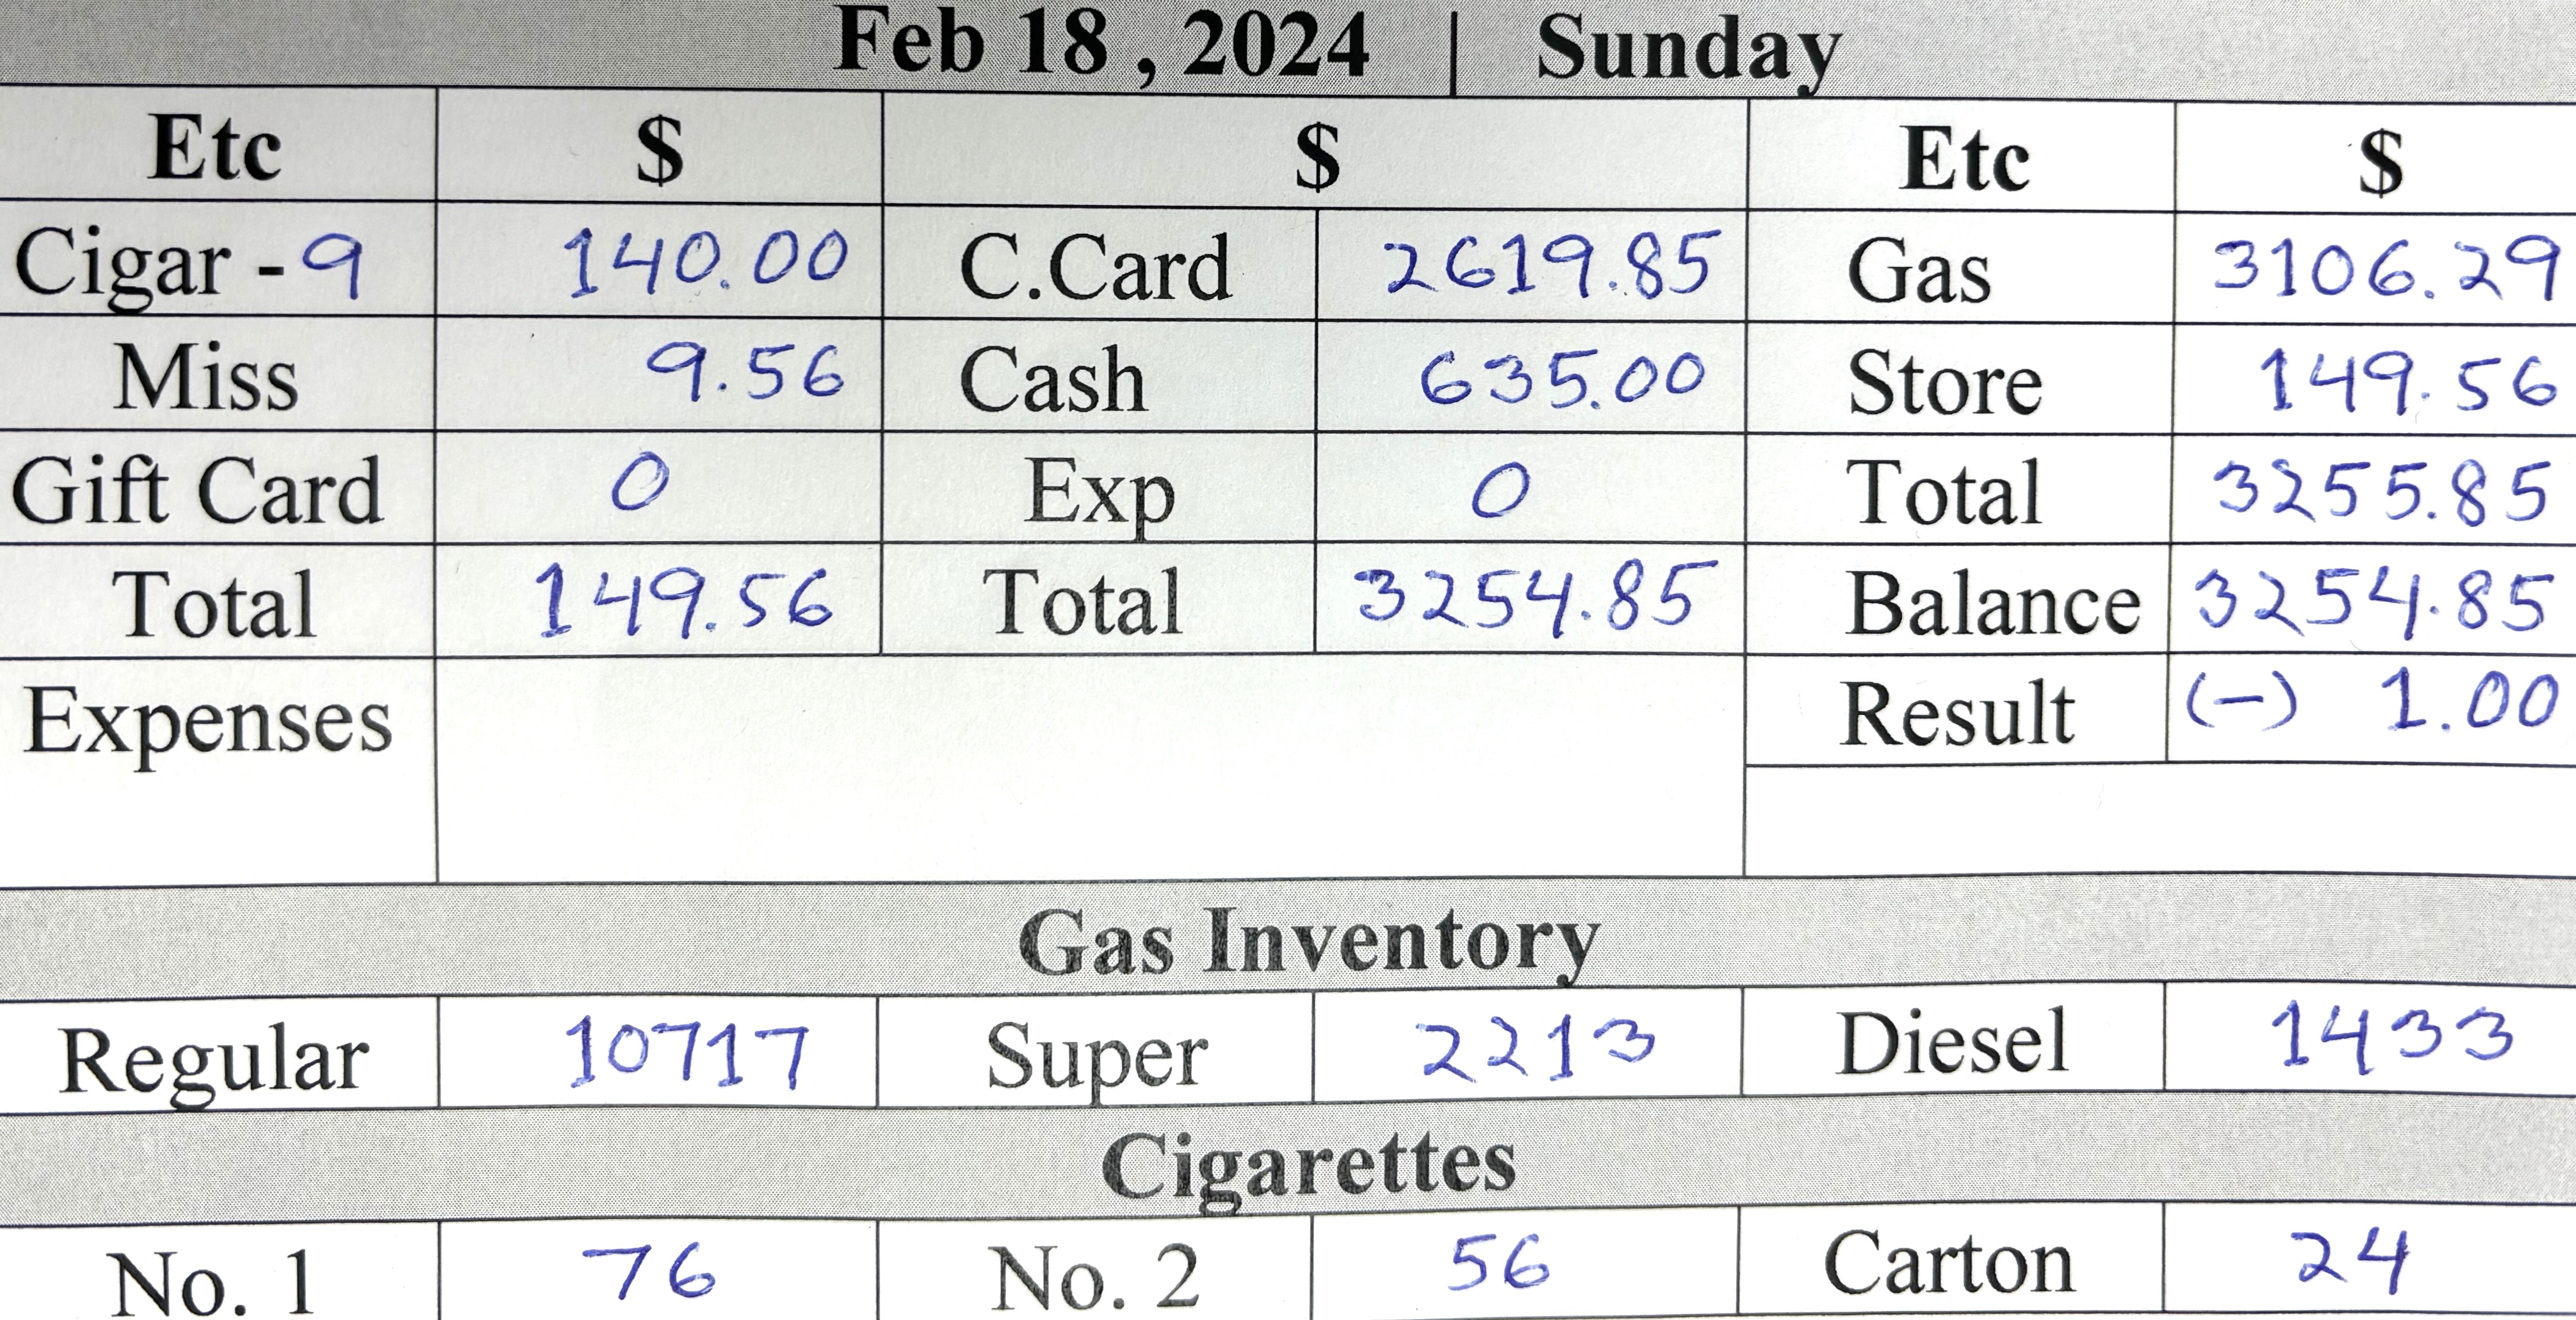 Feb 18 , 2024 | Sunday
Etc $ $ Etc $
Cigar - 9 140.00 C.Card 2619.85 Gas 3106.29
Miss 9.56 Cash 635.00 Store 149.56
Gift Card 0 Exp 0 Total 3255.85
Total 149.56 Total 3254.85 Balance 3254.85
Expenses Result (-) 1.00
Gas Inventory
Regular 10717 Super 2213 Diesel 1433
Cigarettes
No. 1 76 No. 2 56 Carton 24